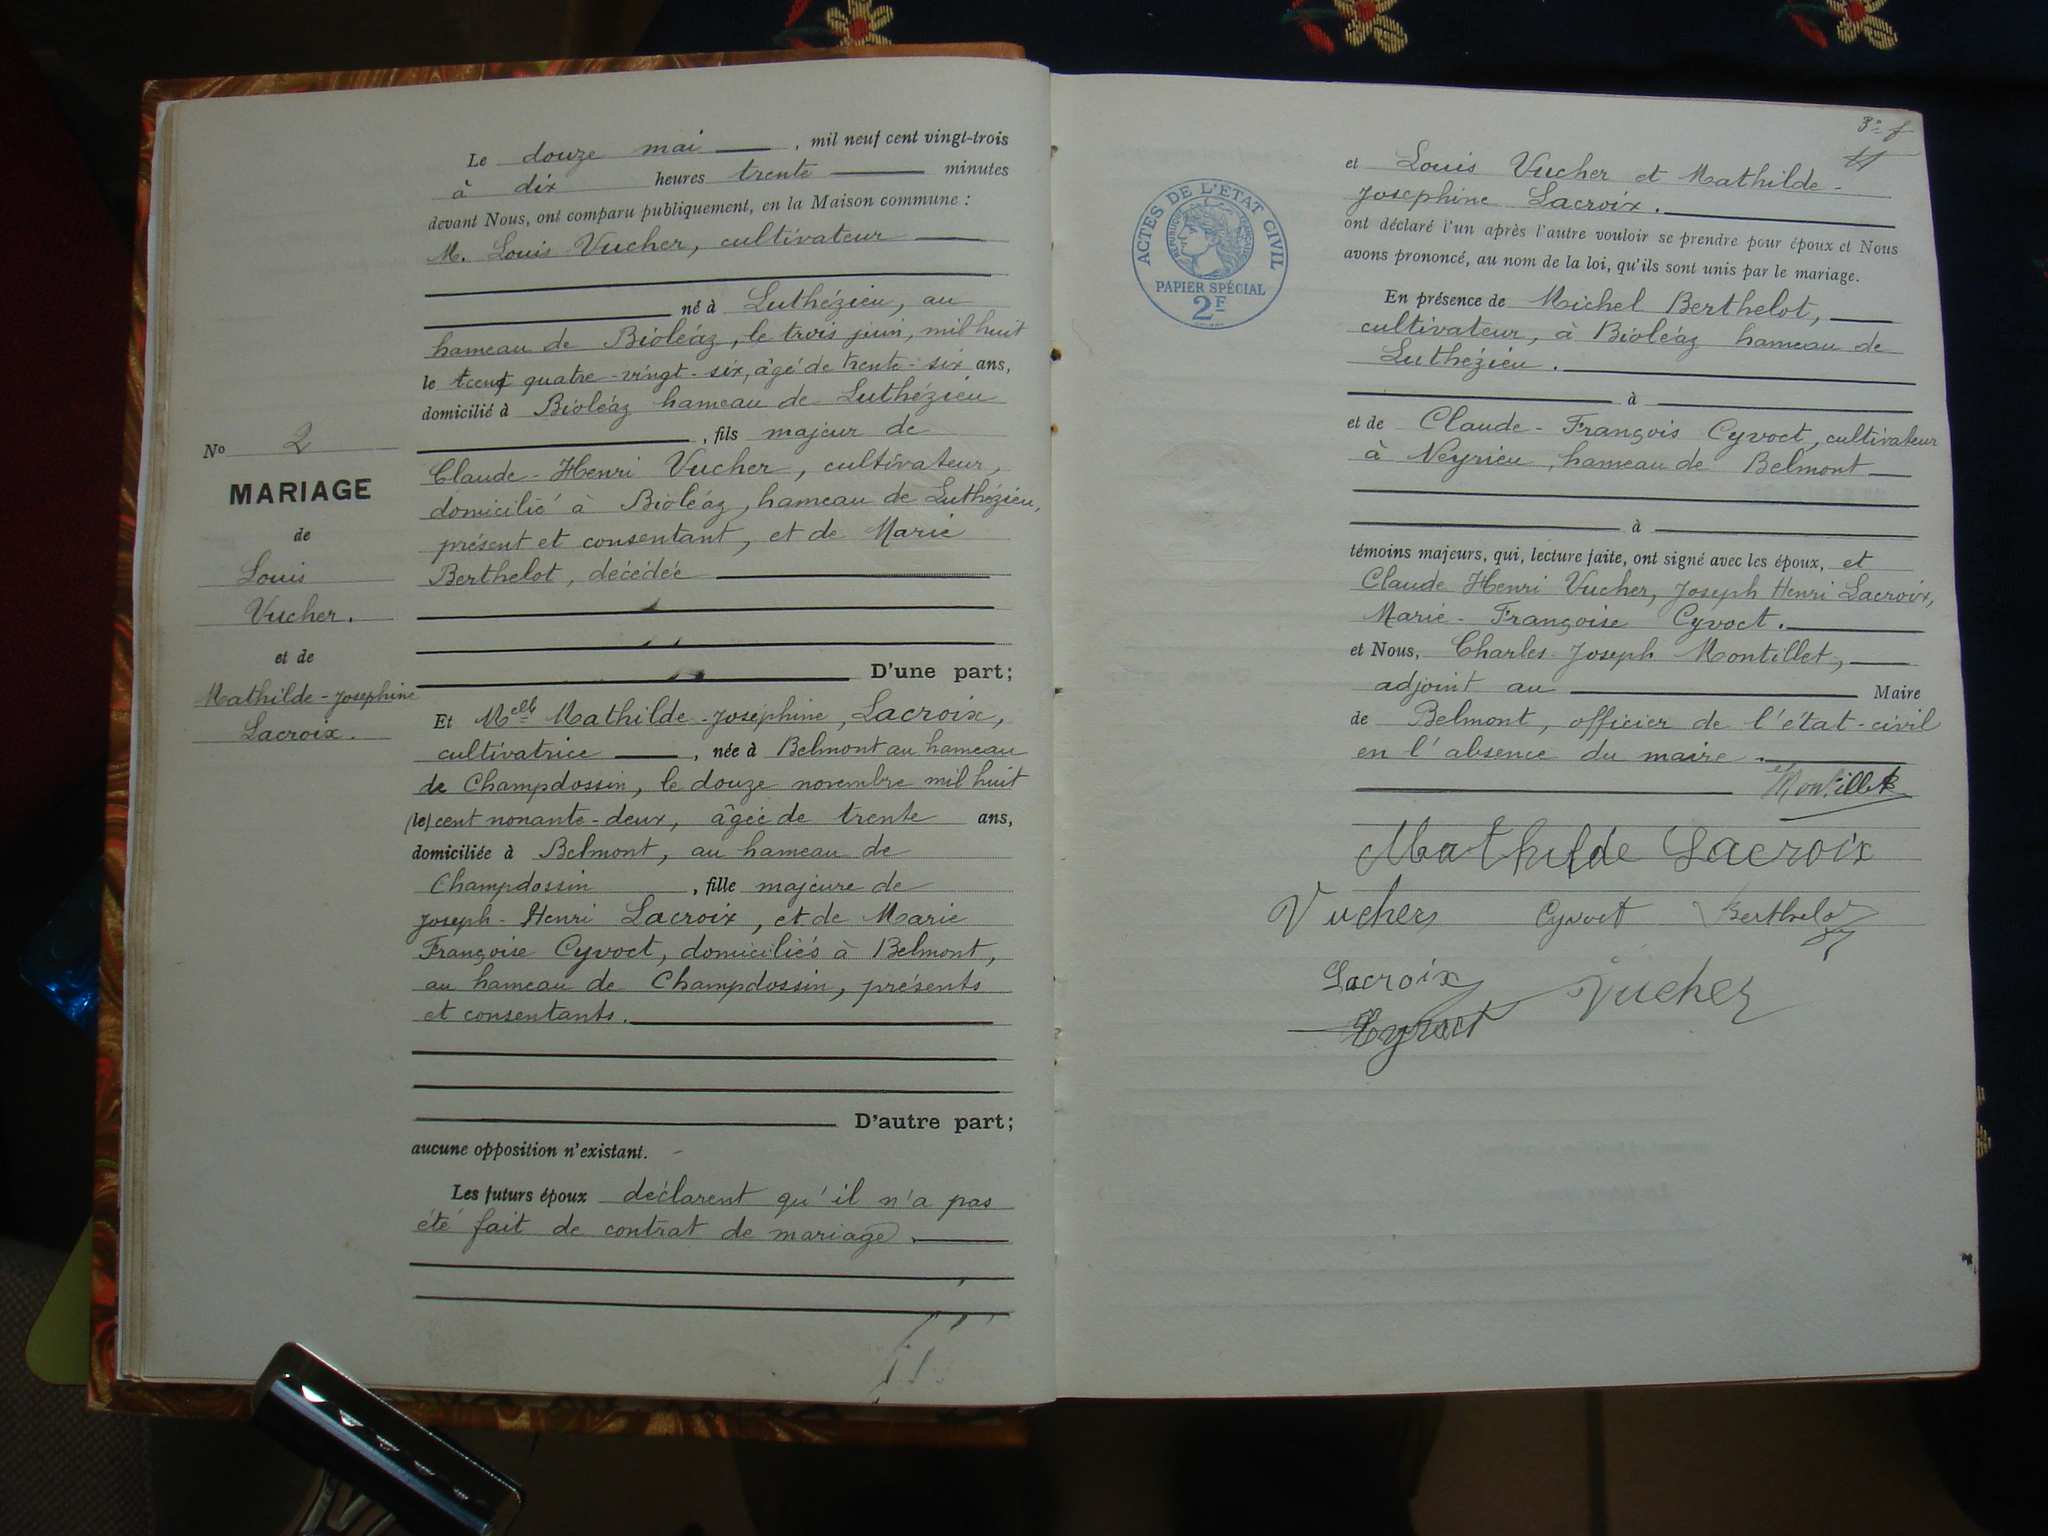 Le douze mai, mil neuf cent vingt-trois
à dix heures trente minutes
devant Nous, ont comparu publiquement, en la Maison commune :
M. Louis Vucher, cultivateur
né à Luthézieu, au
hameau de Bioléaz, le trois juin, mil huit
le cent quatre-vingt-six, âgé de trente-six ans,
domicilié à Bioléaz hameau de Luthézieu
, fils majeur de
Claude-Henri Vucher, cultivateur,
domicilié à Bioléaz, hameau de Luthézieu,
présent et consentant, et de Marie
Berthelot, décédée
D'une part;
Et Melle Mathilde-Joséphine, Lacroix,
cultivatrice, née à Belmont au hameau
de Champdossin, le douze novembre mil huit
(le) cent nonante-deux, âgée de trente ans,
domiciliée à Belmont, au hameau de
Champdossin, fille majeure de
Joseph-Henri Lacroix, et de Marie
Françoise Cyvoct, domiciliés à Belmont,
au hameau de Champdossin, présents
et consentants.
D'autre part;
aucune opposition n'existant.
Les futurs époux déclarent qu'il n'a pas
été fait de contrat de mariage.
No 2
MARIAGE
de
Louis
Vucher.
et de
Mathilde-Josephine
Lacroix.
3e f
ACTES DE L'ETAT CIVIL
REPUBLIQUE FRANÇAISE
PAPIER SPÉCIAL
2F
et Louis Vucher et Mathilde-
Josephine Lacroix.
ont déclaré l'un après l'autre vouloir se prendre pour époux et Nous
avons prononcé, au nom de la loi, qu'ils sont unis par le mariage.
En présence de Michel Berthelot,
cultivateur, à Bioléaz hameau de
Luthézieu.
à
et de Claude-François Cyvoct, cultivateur
à Neyrieu, hameau de Belmont
à
témoins majeurs, qui, lecture faite, ont signé avec les époux, et
Claude Henri Vucher, Joseph Henri Lacroix,
Marie-Françoise Cyvoct.
et Nous, Charles-Joseph Montillet,
adjoint au Maire
de Belmont, officier de l'état-civil
en l'absence du maire.
Montillet
Mathilde Lacroix
Vucher Cyvoct Berthelot
Lacroix Vucher
Cyvoct